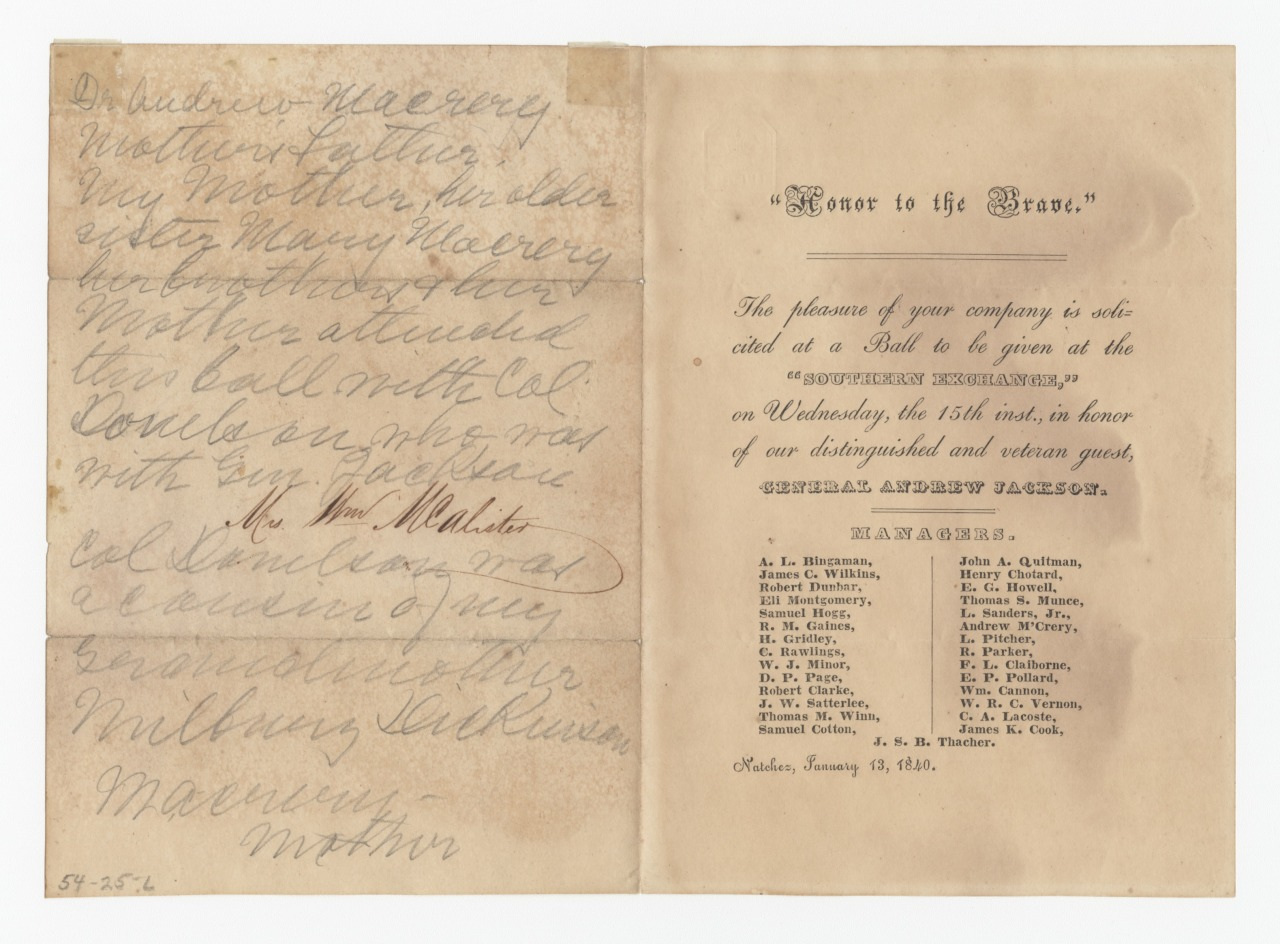 Dr Andrew Macrery
Mother's Father.
My Mother, her older
sister Mary Macrery
her brothers & her
Mother attended
this ball with Col.
Donelson who was
with Gen. Jackson
Mrs. Wm McAlister
Col Donelson was
a cousin of my
Grandmother
Milbury Dickinson
Macrery -
Mother
54-25-L
“Honor to the Brave.”
The pleasure of your company is soli=
cited at a Ball to be given at the
“SOUTHERN EXCHANGE,”
on Wednesday, the 15th inst., in honor
of our distinguished and veteran guest,
GENERAL ANDREW JACKSON.
MANAGERS.
A. L. Bingaman,
James C. Wilkins,
Robert Dunbar,
Eli Montgomery,
Samuel Hogg,
R. M. Gaines,
H. Gridley,
C. Rawlings,
W. J. Minor,
D. P. Page,
Robert Clarke,
J. W. Satterlee,
Thomas M. Winn,
Samuel Cotton,
John A. Quitman,
Henry Chotard,
E. G. Howell,
Thomas S. Munce,
L. Sanders, Jr.,
Andrew M'Crery,
L. Pitcher,
R. Parker,
F. L. Claiborne,
E. P. Pollard,
Wm. Cannon,
W. R. C. Vernon,
C. A. Lacoste,
James K. Cook,
J. S. B. Thacher.
Natchez, January 13, 1840.